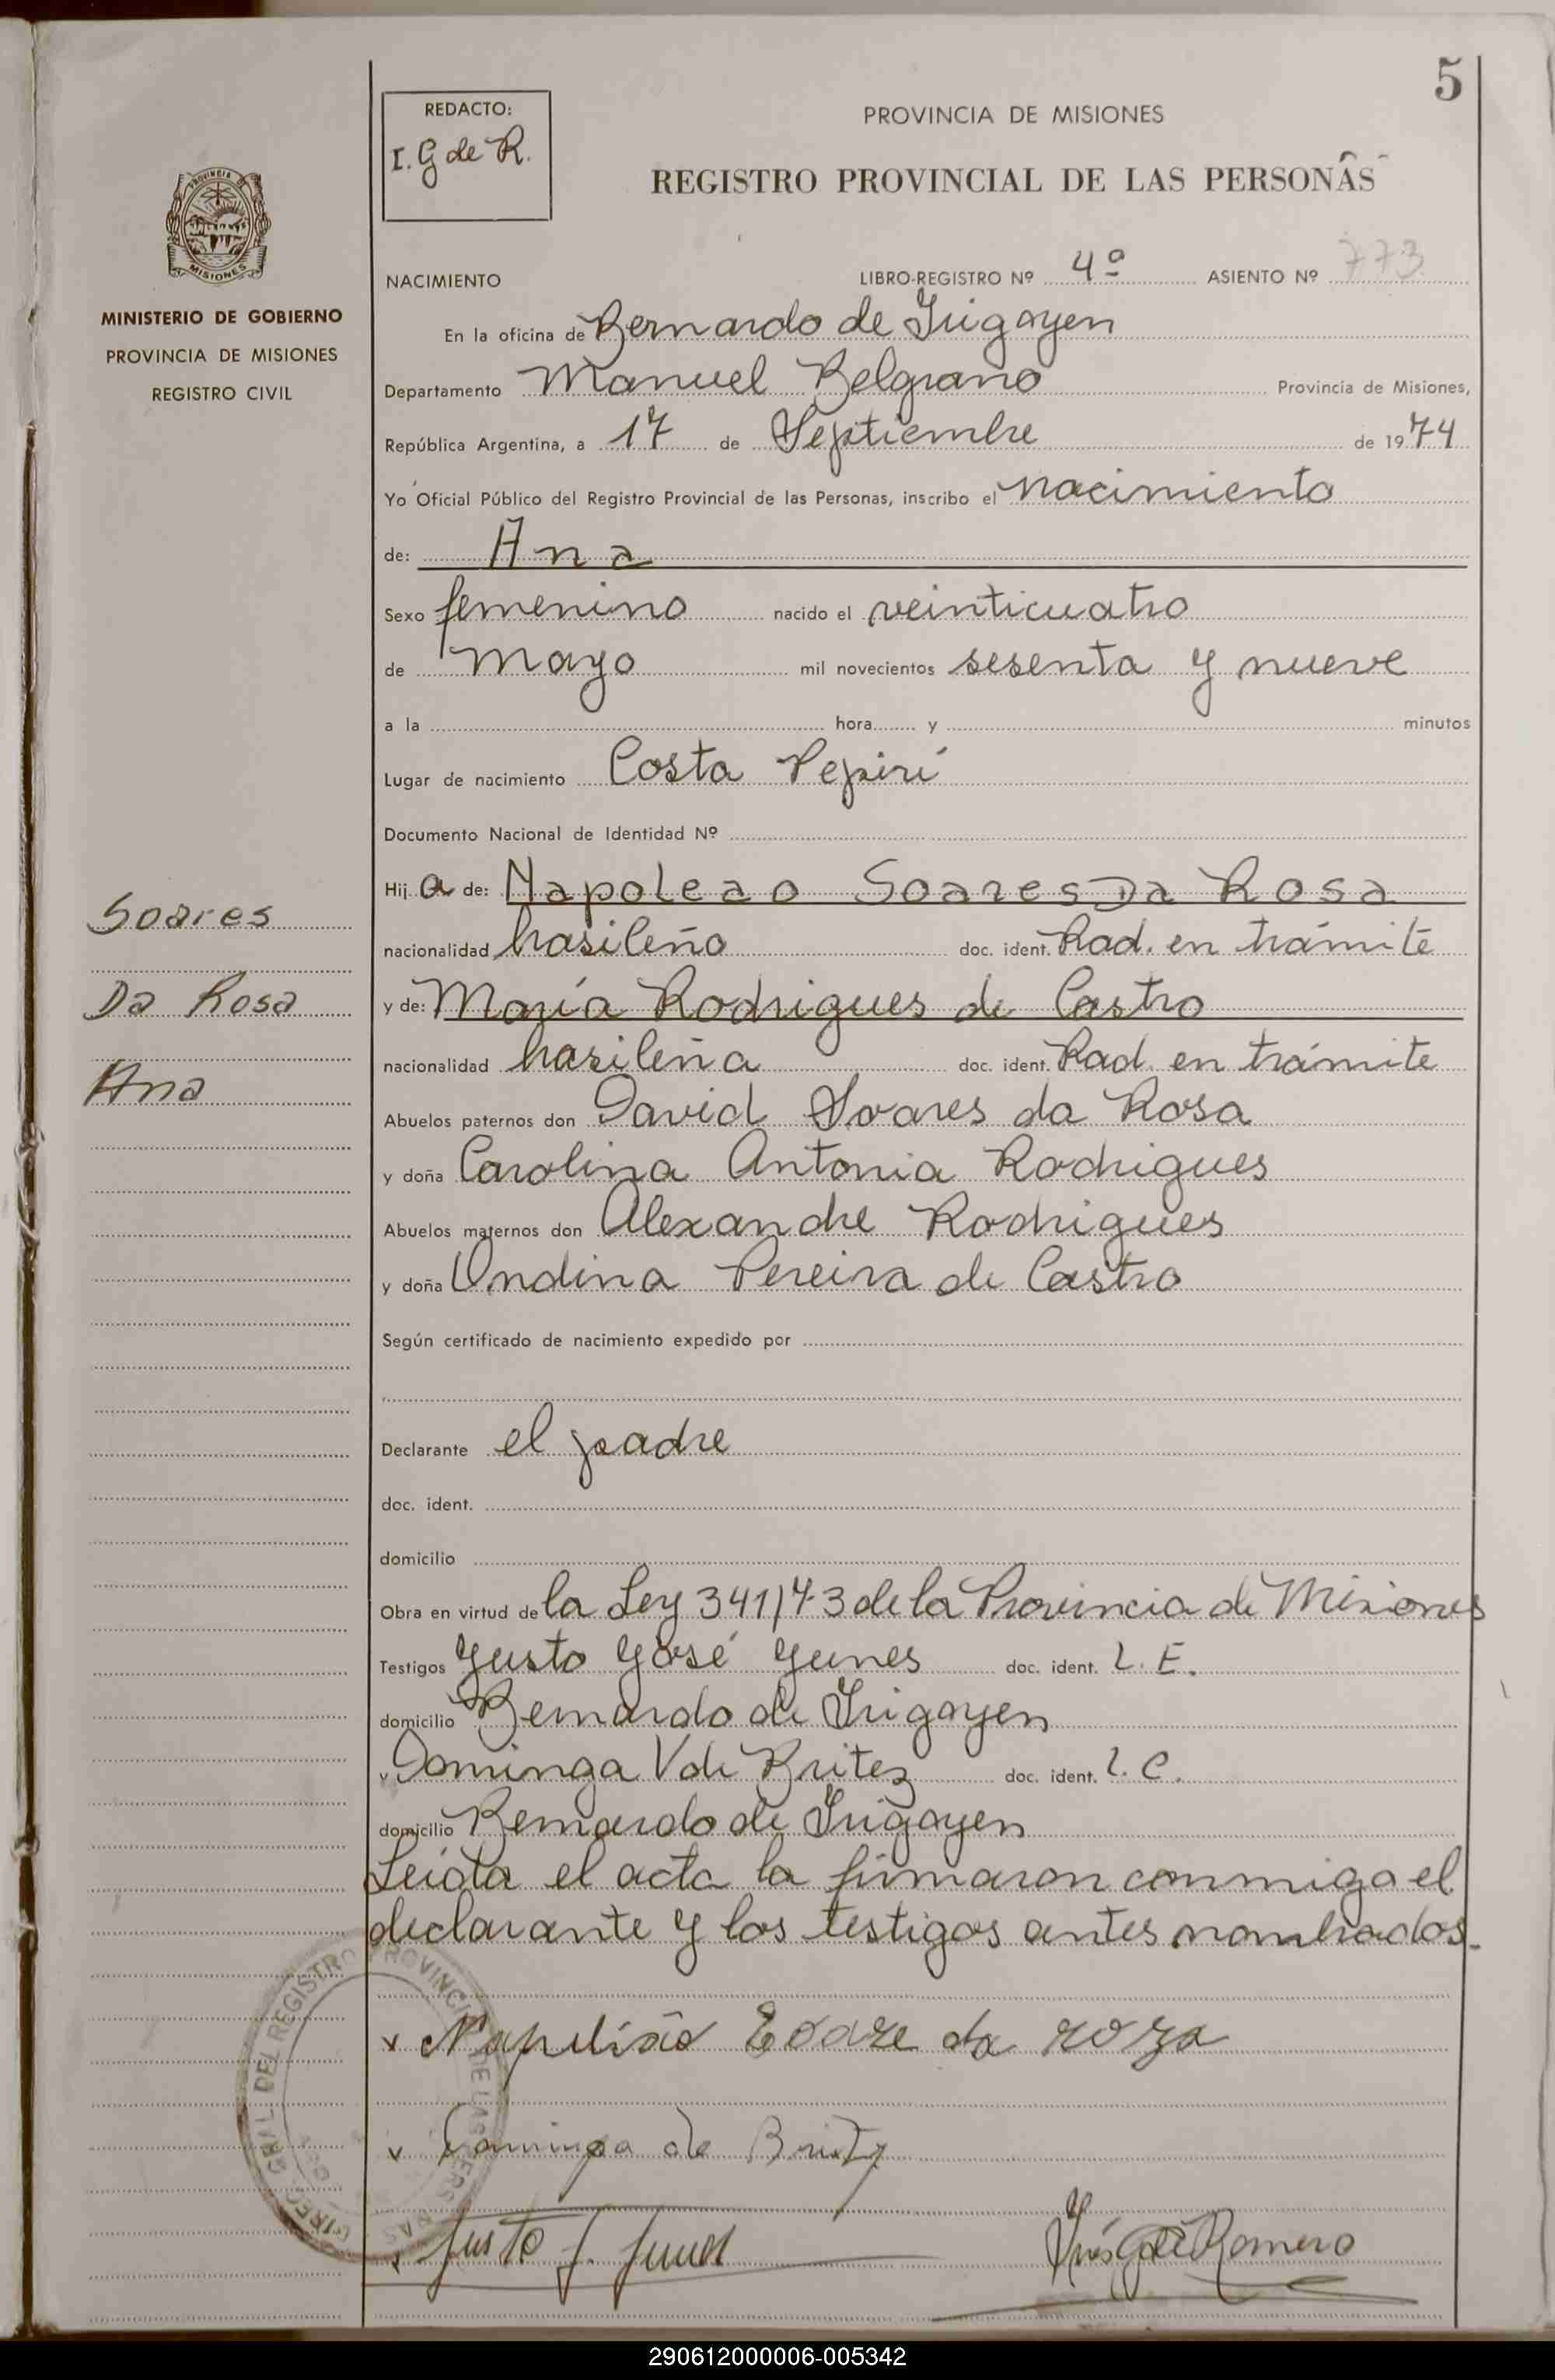 5
REDACTO:
I. G de R.
PROVINCIA DE MISIONES
REGISTRO PROVINCIAL DE LAS PERSONAS
PROVINCIA
MISIONES
MINISTERIO DE GOBIERNO
PROVINCIA DE MISIONES
REGISTRO CIVIL
NACIMIENTO LIBRO-REGISTRO Nº 4º ASIENTO Nº 773
En la oficina de Bernardo de Irigoyen
Departamento Manuel Belgrano Provincia de Misiones,
República Argentina, a 17 de Septiembre de 1974
Yo Oficial Público del Registro Provincial de las Personas, inscribo el nacimiento
de: Ana
Sexo femenino nacido el veinticuatro
de mayo mil novecientos sesenta y nueve
a la hora y minutos
Lugar de nacimiento Costa Pepirí
Documento Nacional de Identidad Nº
Hija de: Napoleao Soares Da Rosa
nacionalidad brasileño doc. ident. Rad. en trámite
y de: María Rodrigues de Castro
nacionalidad brasileña doc. ident. Rad. en trámite
Abuelos paternos don David Soares da Rosa
y doña Carolina Antonia Rodrigues
Abuelos maternos don Alexandre Rodrigues
y doña Ondina Pereira de Castro
Según certificado de nacimiento expedido por
Declarante el padre
doc. ident.
domicilio
Obra en virtud de la Ley 341/73 de la Provincia de Misiones
Testigos Justo José Yunes doc. ident. L. E.
domicilio Bernardo de Irigoyen
y Dominga V de Britez doc. ident. L. C.
domicilio Bernardo de Irigoyen
Leída el acta la firmaron conmigo el
declarante y los testigos antes nombrados.
Soares
Da Rosa
Ana
x Napulião Soare da roza
x Dominga de Britz
x Justo J. Yunes
Inés G de Romero
DIREC. GRAL. DEL REGISTRO PROVINCIAL DE LAS PERSONAS
290612000006-005342